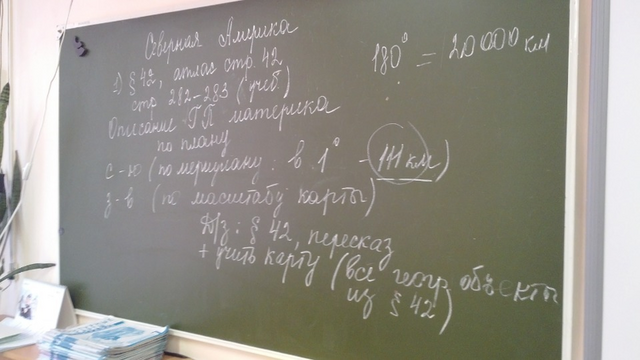 Северная Америка
180° = 20000 км
1) § 42, атлас стр. 42
стр 282-283 (учеб.)
Описание ГП материка
по плану
с-ю (по меридиану: в 1° - 111 км)
з-в (по масштабу карты)
Д/з: § 42, пересказ
+ учить карту (все геогр. объекты
из § 42)